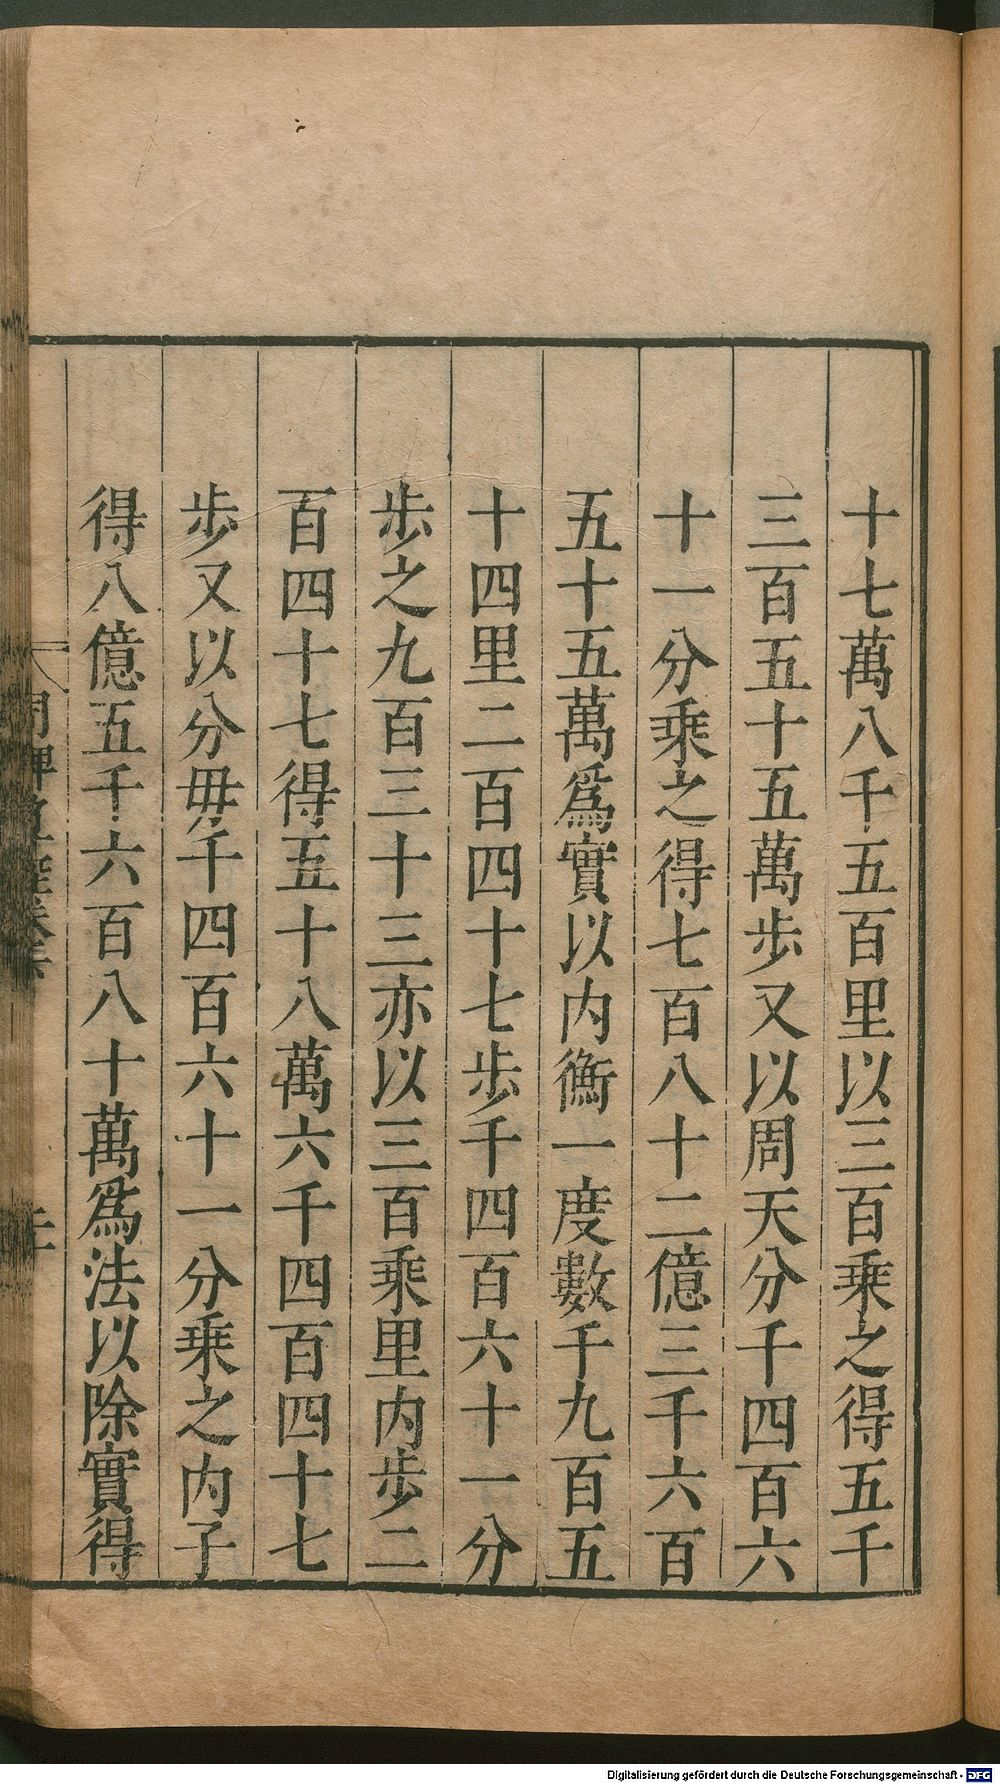 十七萬八千五百里以三百乘之得五千
三百五十五萬步又以周天分千四百六
十一分乘之得七百八十二億三千六百
五十五萬爲實以内衡一度數千九百五
十四里二百四十七步千四百六十一分
步之九百三十三亦以三百乘里内步二
百四十七得五十八萬六千四百四十七
步又以分毋千四百六十一分乘之内子
得八億五千六百八十萬爲法以除實得
周髀算經卷
Digitalisierung gefördert durch die Deutsche Forschungsgemeinschaft - DFG